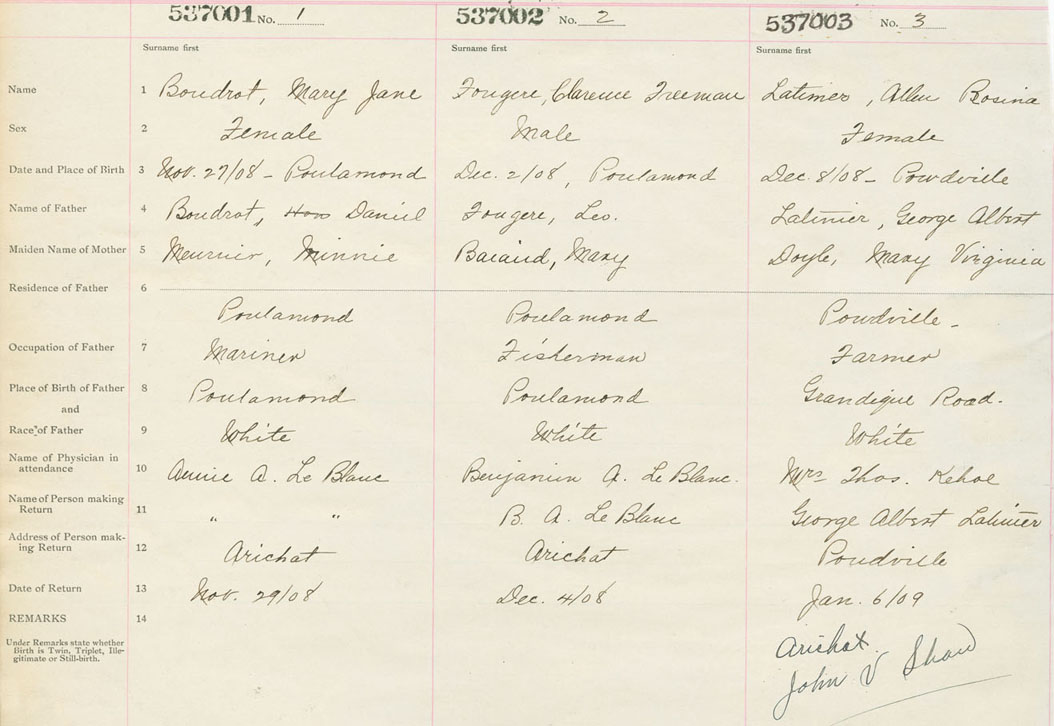 537001 No. 1 537002 No. 2 537003 No. 3
Surname first Surname first Surname first
Name 1 Boudrot, Mary Jane Fougere, Clarence Freeman Latimer, Allen Rosina
Sex 2 Female Male Female
Date and Place of Birth 3 Nov. 27/08 - Poulamond Dec. 2/08, Poulamond Dec. 8/08 - Powdville
Name of Father 4 Boudrot, Daniel Fougere, Leo. Latimer, George Albert
Maiden Name of Mother 5 Meunier, Minnie Mary Doyle, Mary Virginia
Residence of Father 6
Poulamond Poulamond Powdville -
Occupation of Father 7 Mariner Fisherman Farmer
Place of Birth of Father 8 Poulamond Poulamond Grandique Road.
and
Race of Father 9 White White White
Name of Physician in
attendance 10 Annie A. Le Blanc Benjamin A. Le Blanc. Mrs Thos. Kehoe
Name of Person making
Return 11 " " B. A. Le Blanc George Albert Latimer
Address of Person mak-
ing Return 12 Arichat Arichat Poudville
Date of Return 13 Nov. 29/08 Dec. 4/08 Jan. 6/09
REMARKS 14
Under Remarks state whether
Birth is Twin, Triplet, Ille-
gitimate or Still-birth.
Arichat.
John V Shaw